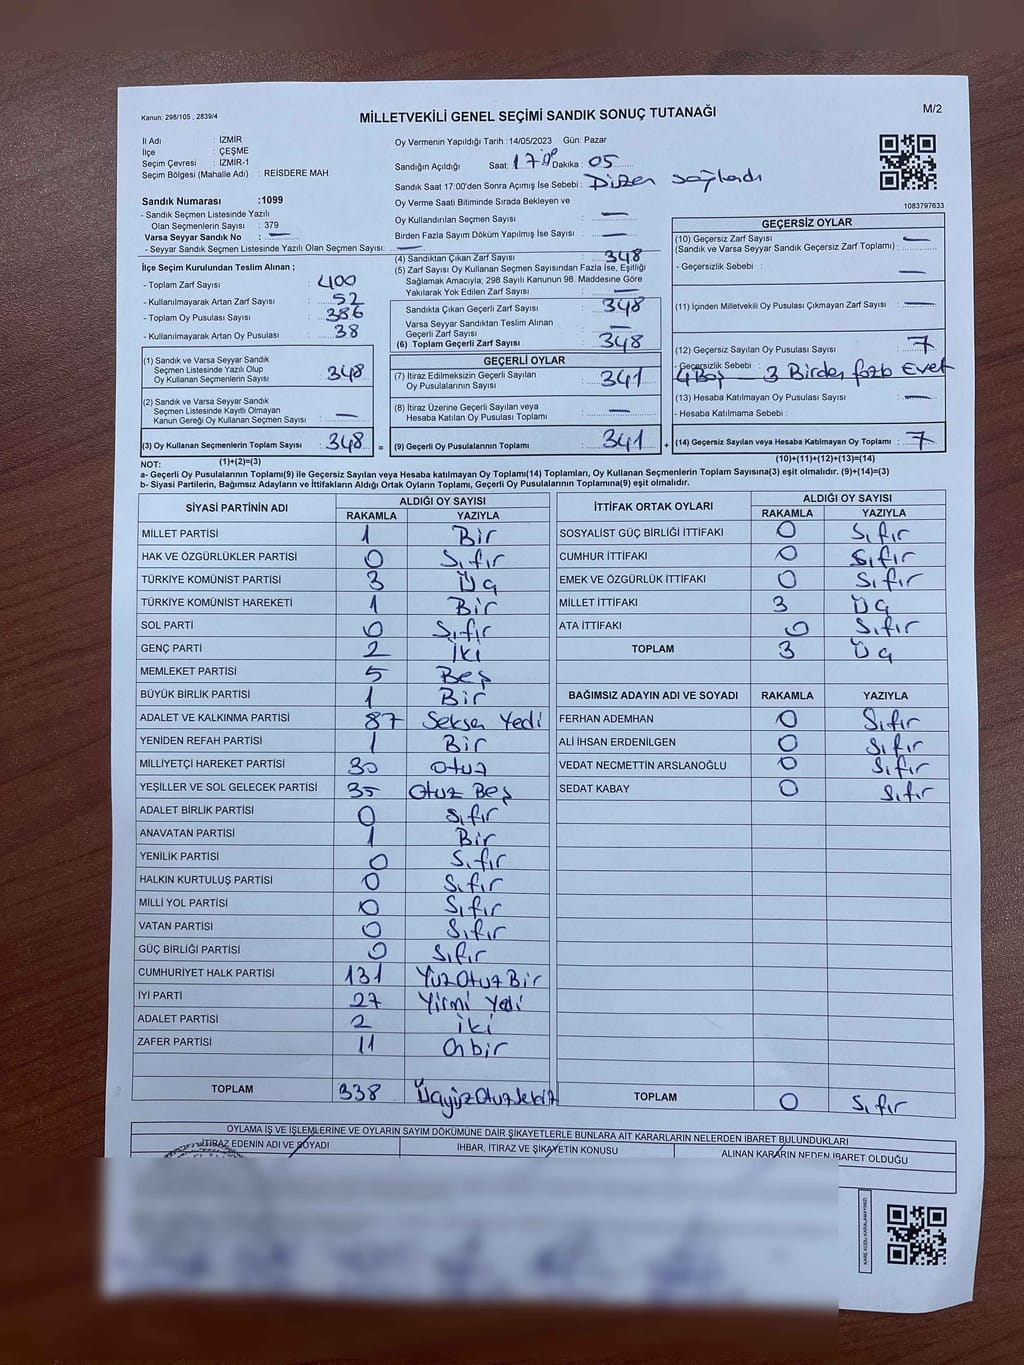 Kanun; 298/105 , 2839/4
MİLLETVEKİLİ GENEL SEÇİMİ SANDIK SONUÇ TUTANAĞI
M/2
İl Adı : İZMİR
İlçe : ÇEŞME
Seçim Çevresi : İZMİR-1
Seçim Bölgesi (Mahalle Adı) : REİSDERE MAH.
Oy Vermenin Yapıldığı Tarih :14/05/2023 Gün: Pazar
Sandığın Açıldığı Saat: 17:00 Dakika : 05
Sandık Saat 17:00'den Sonra Açımış İse Sebebi : Düzen sağlandı
1083797633
Sandık Numarası :1099
- Sandık Seçmen Listesinde Yazılı
Olan Seçmenlerin Sayısı : 379
Varsa Seyyar Sandık No : —
- Seyyar Sandık Seçmen Listesinde Yazılı Olan Seçmen Sayısı: —
Oy Verme Saati Bitiminde Sırada Bekleyen ve
Oy Kullandırılan Seçmen Sayısı : —
Birden Fazla Sayım Döküm Yapılmış İse Sayısı : —
İlçe Seçim Kurulundan Teslim Alınan ;
- Toplam Zarf Sayısı : 400
- Kullanılmayarak Artan Zarf Sayısı : 52
- Toplam Oy Pusulası Sayısı : 386
- Kullanılmayarak Artan Oy Pusulası : 38
(1) Sandık ve Varsa Seyyar Sandık
Seçmen Listesinde Yazılı Olup
Oy Kullanan Seçmenlerin Sayısı : 348
(2) Sandık ve Varsa Seyyar Sandık
Seçmen Listesinde Kayıtlı Olmayan
Kanun Gereği Oy Kullanan Seçmen Sayısı : —
(3) Oy Kullanan Seçmenlerin Toplam Sayısı : 348 =
(1)+(2)=(3)
(4) Sandıktan Çıkan Zarf Sayısı : 348
(5) Zarf Sayısı Oy Kullanan Seçmen Sayısından Fazla İse, Eşitliği
Sağlamak Amacıyla; 298 Sayılı Kanunun 98. Maddesine Göre
Yakılarak Yok Edilen Zarf Sayısı : —
Sandıkta Çıkan Geçerli Zarf Sayısı : 348
Varsa Seyyar Sandıktan Teslim Alınan
Geçerli Zarf Sayısı : —
(6) Toplam Geçerli Zarf Sayısı : 348
GEÇERLİ OYLAR
(7) İtiraz Edilmeksizin Geçerli Sayılan
Oy Pusulalarının Sayısı : 341
(8) İtiraz Üzerine Geçerli Sayılan veya
Hesaba Katılan Oy Pusulası Toplamı : —
(9) Geçerli Oy Pusulalarının Toplamı : 341 +
GEÇERSİZ OYLAR
(10) Geçersiz Zarf Sayısı
(Sandık ve Varsa Seyyar Sandık Geçersiz Zarf Toplamı) : —
- Geçersizlik Sebebi : —
(11) İçinden Milletvekili Oy Pusulası Çıkmayan Zarf Sayısı : —
(12) Geçersiz Sayılan Oy Pusulası Sayısı : 7
- Geçersizlik Sebebi : 4 Boş — 3 Birden fazla Evet
(13) Hesaba Katılmayan Oy Pusulası Sayısı : —
- Hesaba Katılmama Sebebi :
(14) Geçersiz Sayılan veya Hesaba Katılmayan Oy Toplamı : 7
(10)+(11)+(12)+(13)=(14)
NOT:
a- Geçerli Oy Pusulalarının Toplamı(9) ile Geçersiz Sayılan veya Hesaba katılmayan Oy Toplamı(14) Toplamları, Oy Kullanan Seçmenlerin Toplam Sayısına(3) eşit olmalıdır. (9)+(14)=(3)
b- Siyasi Partilerin, Bağımsız Adayların ve İttifakların Aldığı Ortak Oyların Toplamı, Geçerli Oy Pusulalarının Toplamına(9) eşit olmalıdır.
SİYASİ PARTİNİN ADI ALDIĞI OY SAYISI
RAKAMLA YAZIYLA
MİLLET PARTİSİ 1 Bir
HAK VE ÖZGÜRLÜKLER PARTİSİ 0 Sıfır
TÜRKİYE KOMÜNİST PARTİSİ 3 Üç
TÜRKİYE KOMÜNİST HAREKETİ 1 Bir
SOL PARTİ 0 Sıfır
GENÇ PARTİ 2 İki
MEMLEKET PARTİSİ 5 Beş
BÜYÜK BİRLİK PARTİSİ 1 Bir
ADALET VE KALKINMA PARTİSİ 87 Seksen Yedi
YENİDEN REFAH PARTİSİ 1 Bir
MİLLİYETÇİ HAREKET PARTİSİ 30 Otuz
YEŞİLLER VE SOL GELECEK PARTİSİ 35 Otuz Beş
ADALET BİRLİK PARTİSİ 0 Sıfır
ANAVATAN PARTİSİ 1 Bir
YENİLİK PARTİSİ 0 Sıfır
HALKIN KURTULUŞ PARTİSİ 0 Sıfır
MİLLİ YOL PARTİSİ 0 Sıfır
VATAN PARTİSİ 0 Sıfır
GÜÇ BİRLİĞİ PARTİSİ 0 Sıfır
CUMHURİYET HALK PARTİSİ 131 Yüz Otuz Bir
İYİ PARTİ 27 Yirmi Yedi
ADALET PARTİSİ 2 İki
ZAFER PARTİSİ 11 Onbir
TOPLAM 338 ÜçyüzOtuzSekiz
İTTİFAK ORTAK OYLARI ALDIĞI OY SAYISI
RAKAMLA YAZIYLA
SOSYALİST GÜÇ BİRLİĞİ İTTİFAKI 0 Sıfır
CUMHUR İTTİFAKI 0 Sıfır
EMEK VE ÖZGÜRLÜK İTTİFAKI 0 Sıfır
MİLLET İTTİFAKI 3 Üç
ATA İTTİFAKI 0 Sıfır
TOPLAM 3 Üç
BAĞIMSIZ ADAYIN ADI VE SOYADI RAKAMLA YAZIYLA
FERHAN ADEMHAN 0 Sıfır
ALİ İHSAN ERDENİLGEN 0 Sıfır
VEDAT NECMETTİN ARSLANOĞLU 0 Sıfır
SEDAT KABAY 0 Sıfır
TOPLAM 0 Sıfır
OYLAMA İŞ VE İŞLEMLERİNE VE OYLARIN SAYIM DÖKÜMÜNE DAİR ŞİKAYETLERLE BUNLARA AİT KARARLARIN NELERDEN İBARET BULUNDUKLARI
İTİRAZ EDENİN ADI VE SOYADI
İHBAR, İTİRAZ VE ŞİKAYETİN KONUSU
ALINAN KARARIN NEDEN İBARET OLDUĞU
KARE KODU KARALAMAYINIZ!